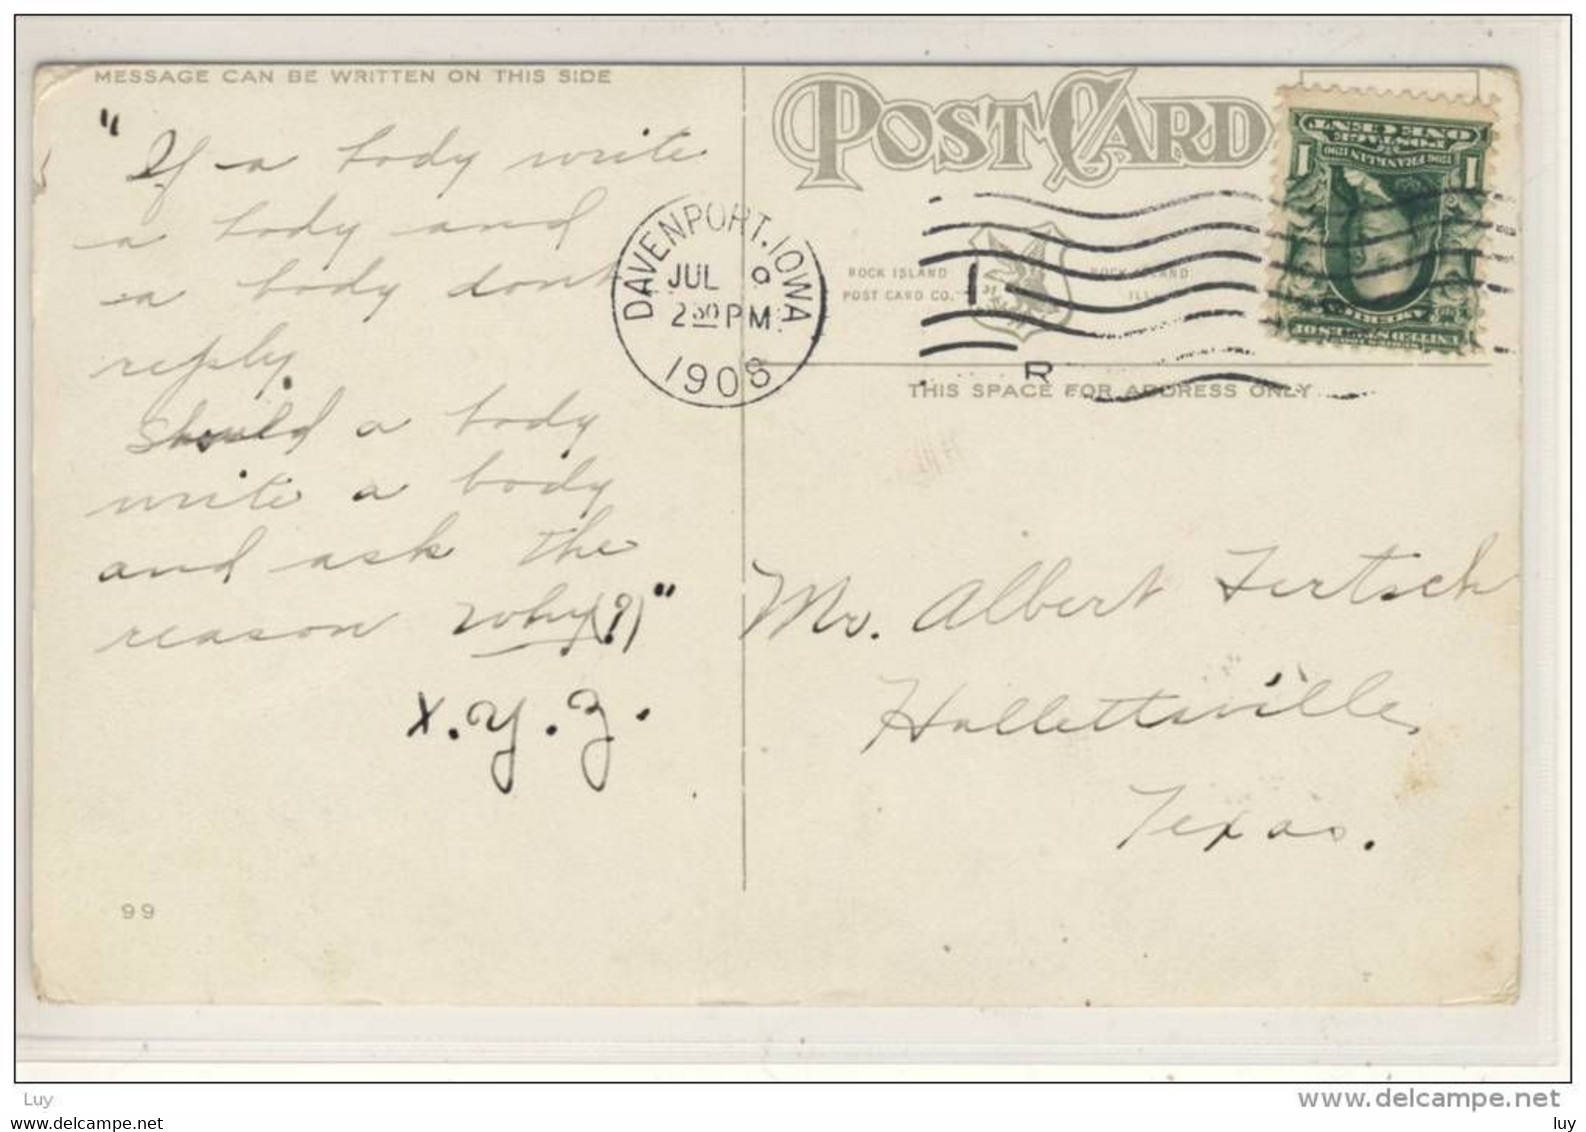 MESSAGE CAN BE WRITTEN ON THIS SIDE
"If a body write
a body and
a body dont
reply.
Should a body
write a body
and ask the
reason why(?)"
X.Y.Z.
99
POST CARD
DAVENPORT, IOWA
JUL 9
2 30 PM
1908
ROCK ISLAND
POST CARD CO.
ROCK ISLAND
ILL.
1
R
THIS SPACE FOR ADDRESS ONLY
ONE CENT
POSTAGE
1706 FRANKLIN 1790
1 1
AMERICA
Mr. Albert Fertsch
Hallettsville
Texas.
Luy
www.delcampe.net
www.delcampe.net
luy